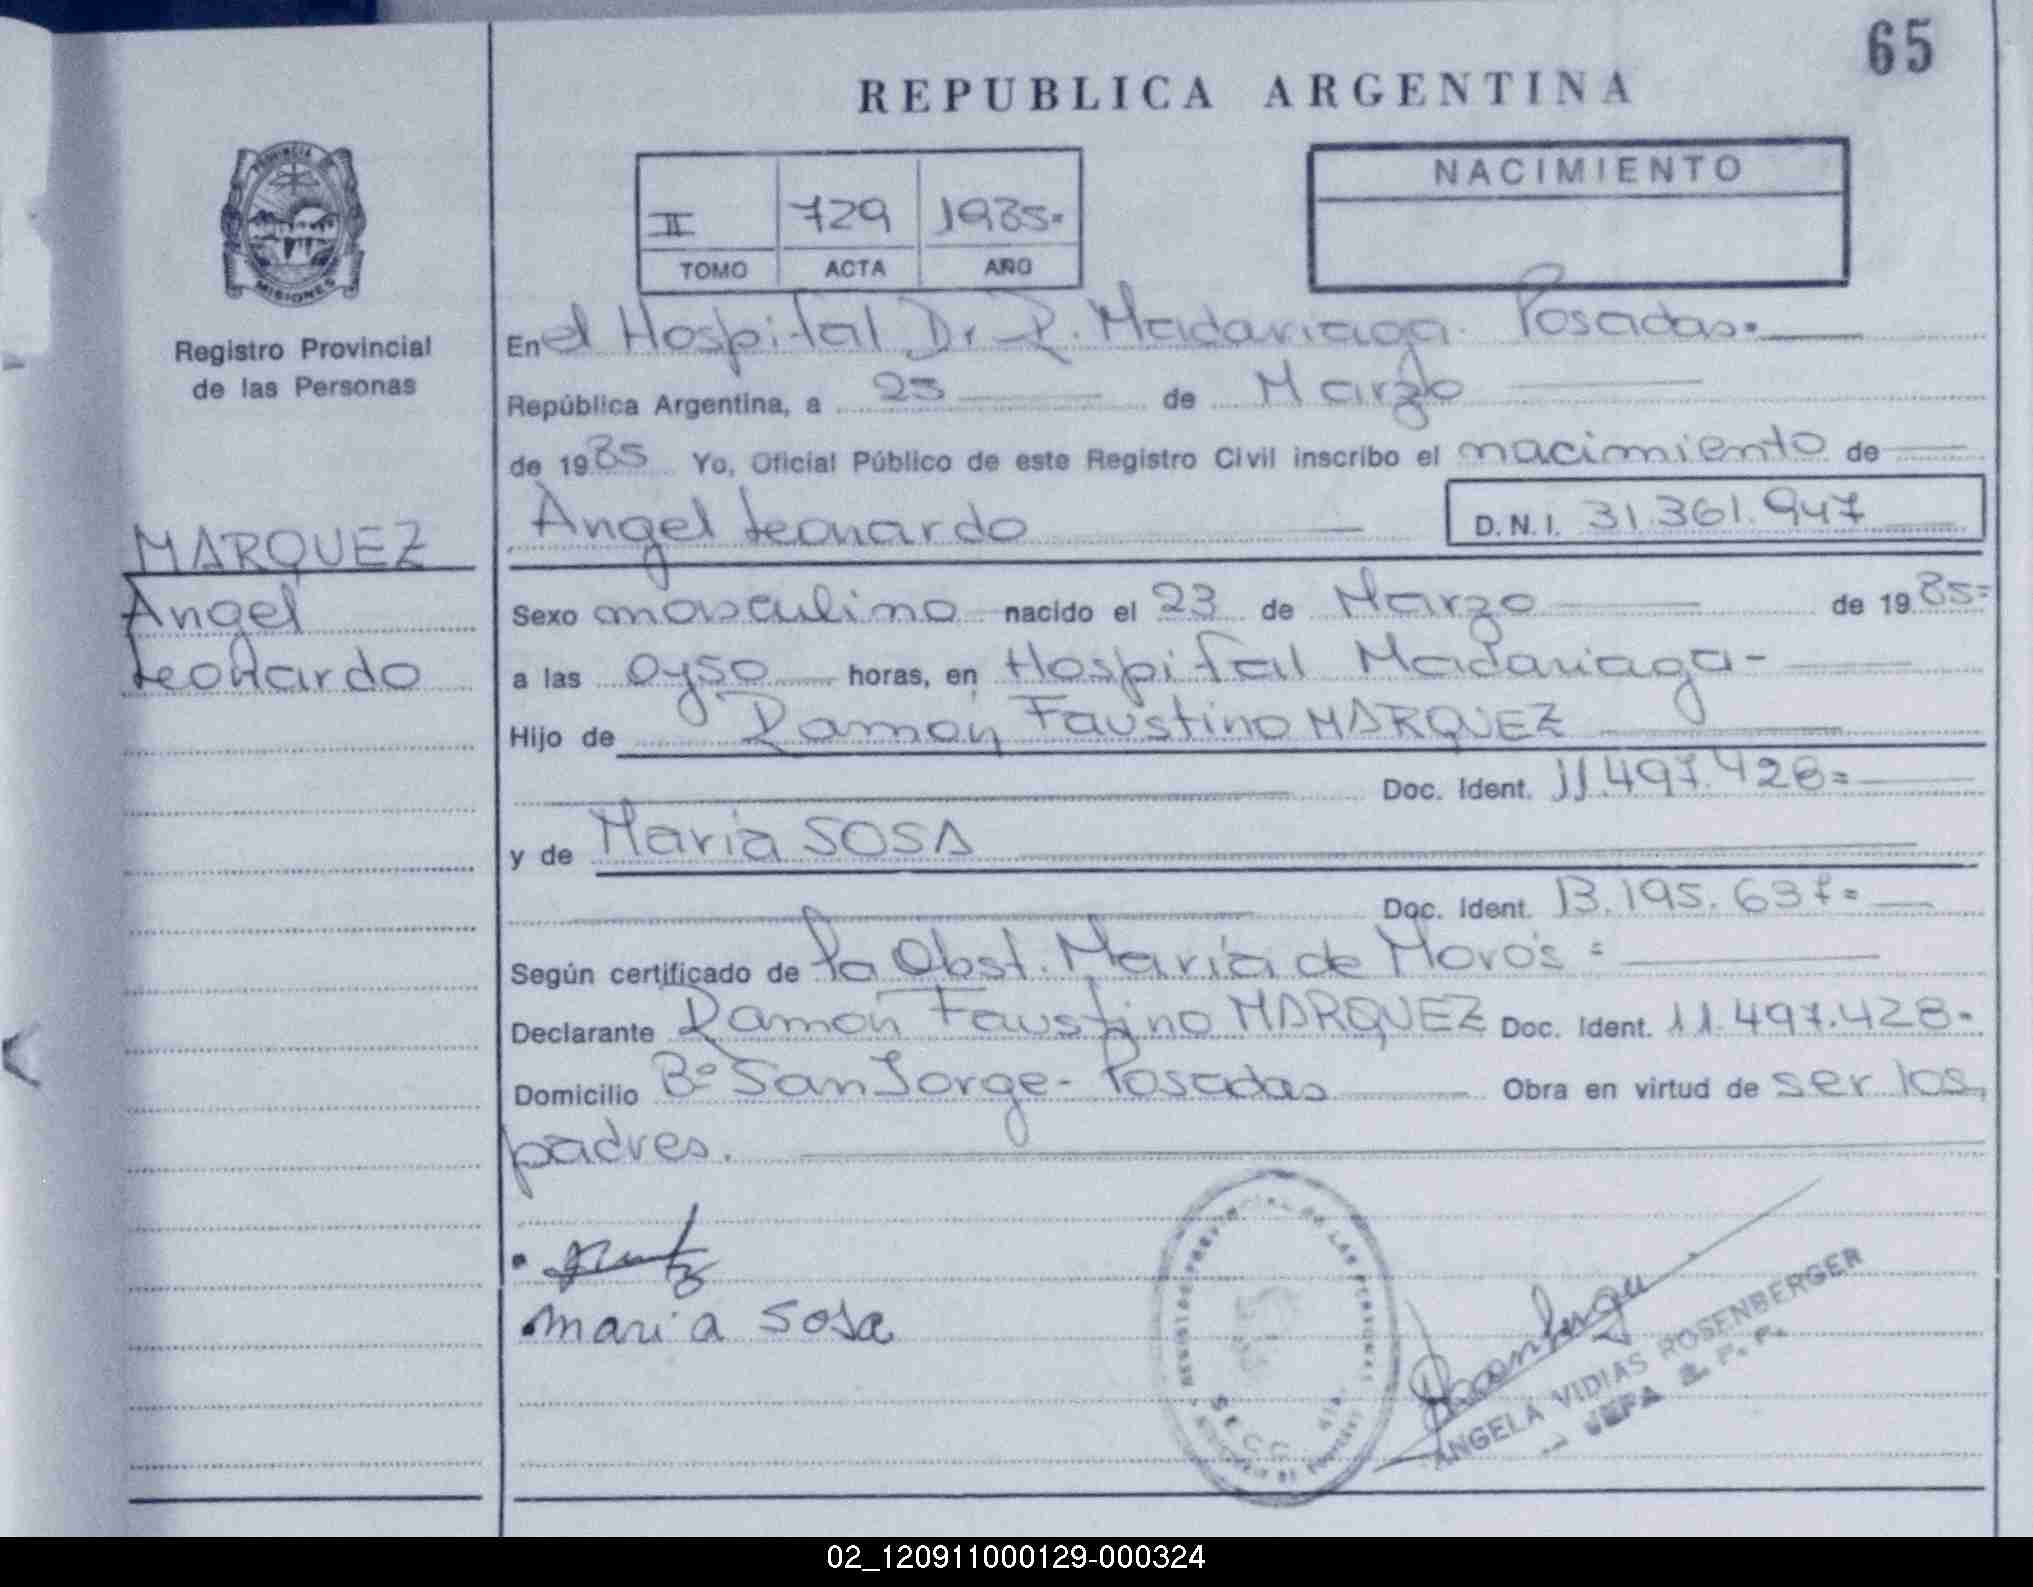 65
REPUBLICA ARGENTINA
PROVINCIA DE
MISIONES
Registro Provincial
de las Personas
II 729 1985.
TOMO ACTA AÑO
NACIMIENTO
En el Hospital Dr R. Madariaga. Posadas.
República Argentina, a 25 de Marzo
de 1985 Yo, Oficial Público de este Registro Civil inscribo el nacimiento de
Angel Leonardo D.N.I. 31.361.947
MARQUEZ
Angel
Leonardo
Sexo masculino nacido el 23 de Marzo de 1985=
a las 0y50 horas, en Hospital Madariaga-
Hijo de Ramon Faustino MARQUEZ
Doc. Ident. 11.497.428=
y de Maria SOSA
Doc. Ident. 13.195.637=
Según certificado de la Obst. Maria de Moros =
Declarante Ramon Faustino MARQUEZ Doc. Ident. 11.497.428.
Domicilio Bº San Jorge- Posadas Obra en virtud de ser los
padres.
maria Sosa
REGISTRO PROVINCIAL DE LAS PERSONAS
ANGELA VIDIAS ROSENBERGER
JEFA
02_120911000129-000324